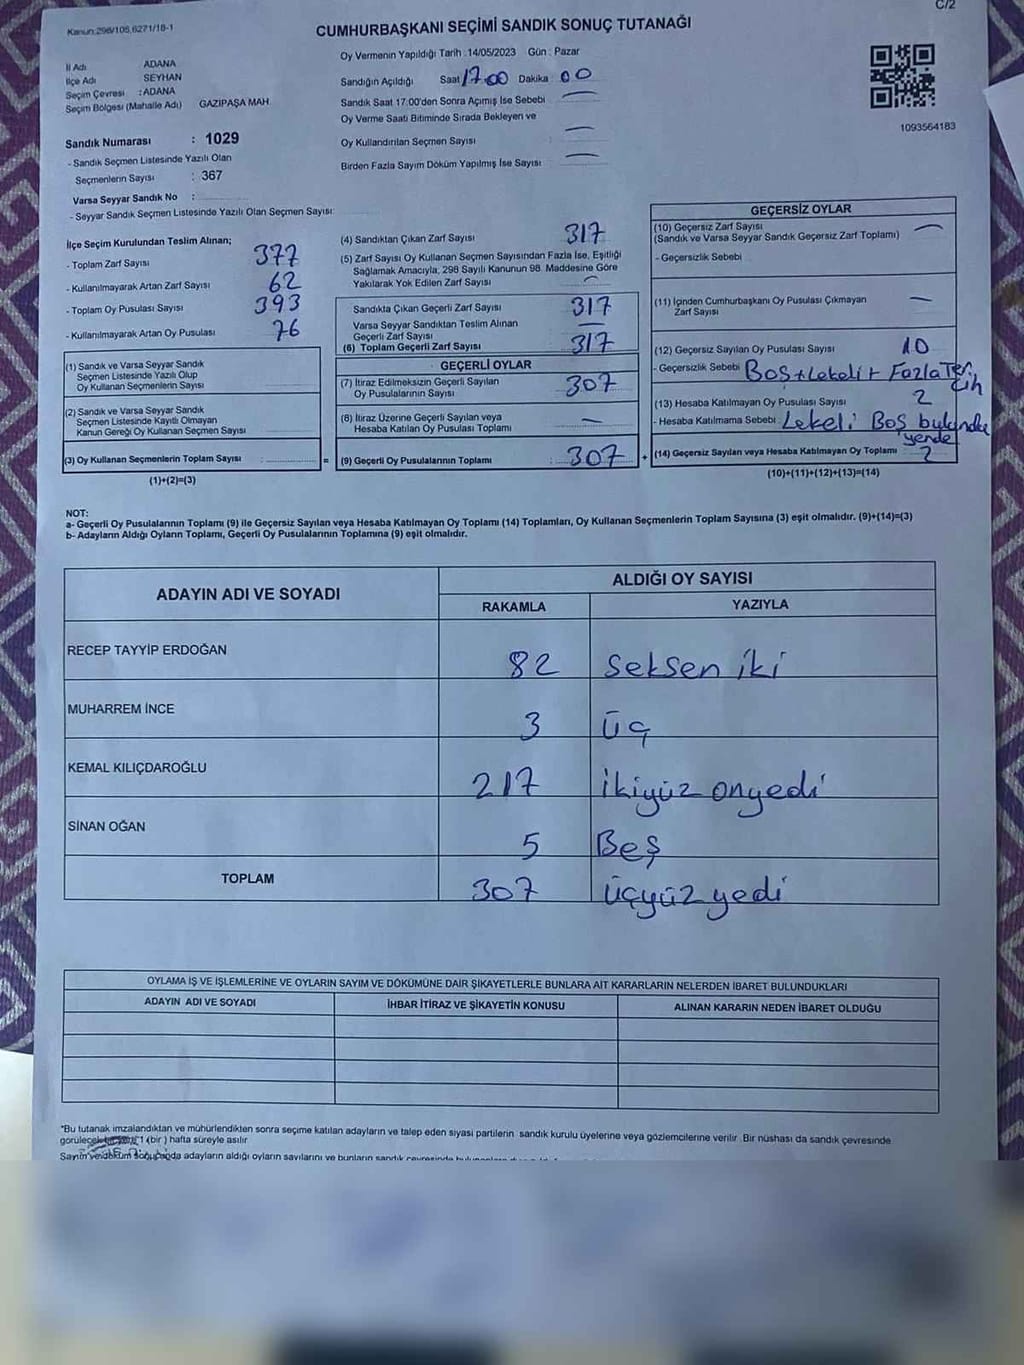 C/2
Kanun:298/105,6271/18-1
CUMHURBAŞKANI SEÇİMİ SANDIK SONUÇ TUTANAĞI
İl Adı ADANA
İlçe Adı SEYHAN
Seçim Çevresi :ADANA
Seçim Bölgesi (Mahalle Adı) GAZİPAŞA MAH
Sandık Numarası : 1029
- Sandık Seçmen Listesinde Yazılı Olan
Seçmenlerin Sayısı : 367
Varsa Seyyar Sandık No :
- Seyyar Sandık Seçmen Listesinde Yazılı Olan Seçmen Sayısı:
Oy Vermenin Yapıldığı Tarih :14/05/2023 Gün : Pazar
Sandığın Açıldığı Saat 17:00 Dakika 00
Sandık Saat 17:00'den Sonra Açımış İse Sebebi
Oy Verme Saati Bitiminde Sırada Bekleyen ve
Oy Kullandırılan Seçmen Sayısı :
Birden Fazla Sayım Döküm Yapılmış İse Sayısı
1093564183
İlçe Seçim Kurulundan Teslim Alınan;
- Toplam Zarf Sayısı 377
- Kullanılmayarak Artan Zarf Sayısı 62
- Toplam Oy Pusulası Sayısı 393
- Kullanılmayarak Artan Oy Pusulası 76
(1) Sandık ve Varsa Seyyar Sandık
Seçmen Listesinde Yazılı Olup
Oy Kullanan Seçmenlerin Sayısı
(2) Sandık ve Varsa Seyyar Sandık
Seçmen Listesinde Kayıtlı Olmayan
Kanun Gereği Oy Kullanan Seçmen Sayısı
(3) Oy Kullanan Seçmenlerin Toplam Sayısı : =
(1)+(2)=(3)
(4) Sandıktan Çıkan Zarf Sayısı 317
(5) Zarf Sayısı Oy Kullanan Seçmen Sayısından Fazla İse, Eşitliği
Sağlamak Amacıyla, 298 Sayılı Kanunun 98. Maddesine Göre
Yakılarak Yok Edilen Zarf Sayısı
Sandıkta Çıkan Geçerli Zarf Sayısı 317
Varsa Seyyar Sandıktan Teslim Alınan
Geçerli Zarf Sayısı
(6) Toplam Geçerli Zarf Sayısı 317
GEÇERLİ OYLAR
(7) İtiraz Edilmeksizin Geçerli Sayılan
Oy Pusulalarının Sayısı 307
(8) İtiraz Üzerine Geçerli Sayılan veya
Hesaba Katılan Oy Pusulası Toplamı
(9) Geçerli Oy Pusulalarının Toplamı : 307 +
GEÇERSİZ OYLAR
(10) Geçersiz Zarf Sayısı
(Sandık ve Varsa Seyyar Sandık Geçersiz Zarf Toplamı)
- Geçersizlik Sebebi
(11) İçinden Cumhurbaşkanı Oy Pusulası Çıkmayan
Zarf Sayısı
(12) Geçersiz Sayılan Oy Pusulası Sayısı 10
- Geçersizlik Sebebi Boş+Lekeli+ Fazla Tercih
(13) Hesaba Katılmayan Oy Pusulası Sayısı 2
- Hesaba Katılmama Sebebi : Lekeli Boş
(14) Geçersiz Sayılan veya Hesaba Katılmayan Oy Toplamı
(10)+(11)+(12)+(13)=(14)
NOT:
a- Geçerli Oy Pusulalarının Toplamı (9) ile Geçersiz Sayılan veya Hesaba Katılmayan Oy Toplamı (14) Toplamları, Oy Kullanan Seçmenlerin Toplam Sayısına (3) eşit olmalıdır. (9)+(14)=(3)
b- Adayların Aldığı Oyların Toplamı, Geçerli Oy Pusulalarının Toplamına (9) eşit olmalıdır.
ADAYIN ADI VE SOYADI ALDIĞI OY SAYISI
RAKAMLA YAZIYLA
RECEP TAYYİP ERDOĞAN 82 Seksen iki
MUHARREM İNCE 3 üç
KEMAL KILIÇDAROĞLU 217 ikiyüz onyedi
SİNAN OĞAN 5 Beş
TOPLAM 307 üçyüz yedi
OYLAMA İŞ VE İŞLEMLERİNE VE OYLARIN SAYIM VE DÖKÜMÜNE DAİR ŞİKAYETLERLE BUNLARA AİT KARARLARIN NELERDEN İBARET BULUNDUKLARI
ADAYIN ADI VE SOYADI İHBAR İTİRAZ VE ŞİKAYETİN KONUSU ALINAN KARARIN NEDEN İBARET OLDUĞU
*Bu tutanak imzalandıktan ve mühürlendikten sonra seçime katılan adayların ve talep eden siyasi partilerin sandık kurulu üyelerine veya gözlemcilerine verilir. Bir nüshası da sandık çevresinde
görülecek 1 (bir) hafta süreyle asılır.
adayların aldığı oyların sayılarını ve bunların sandık çevresinde